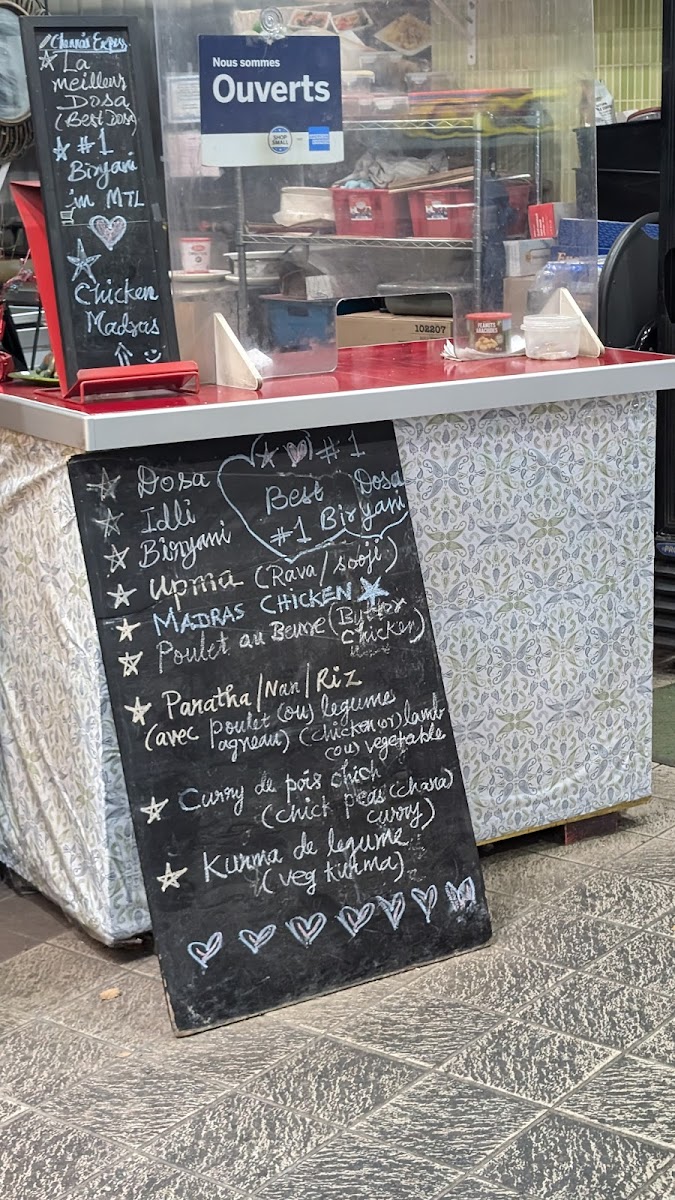 Chennai Express
La
meilleur
Dosa
(Best Dosa)
#1
Biryani
in MTL
Chicken
Madras
Nous sommes
Ouverts
SHOP SMALL
102207
PEANUTS
ARACHIDES
#1
Best Dosa
#1 Biryani
Dosa
Idli
Biryani
Upma (Rava/sooji)
MADRAS CHICKEN
Poulet au Beurre (Butter
Chicken)
Paratha/Nan/Riz
(avec poulet (ou) legume
agneau) (chicken (or) lamb
(ou) vegetable
Curry de pois chich
(chick peas (chana)
curry)
Kurma de legume
(veg kurma)